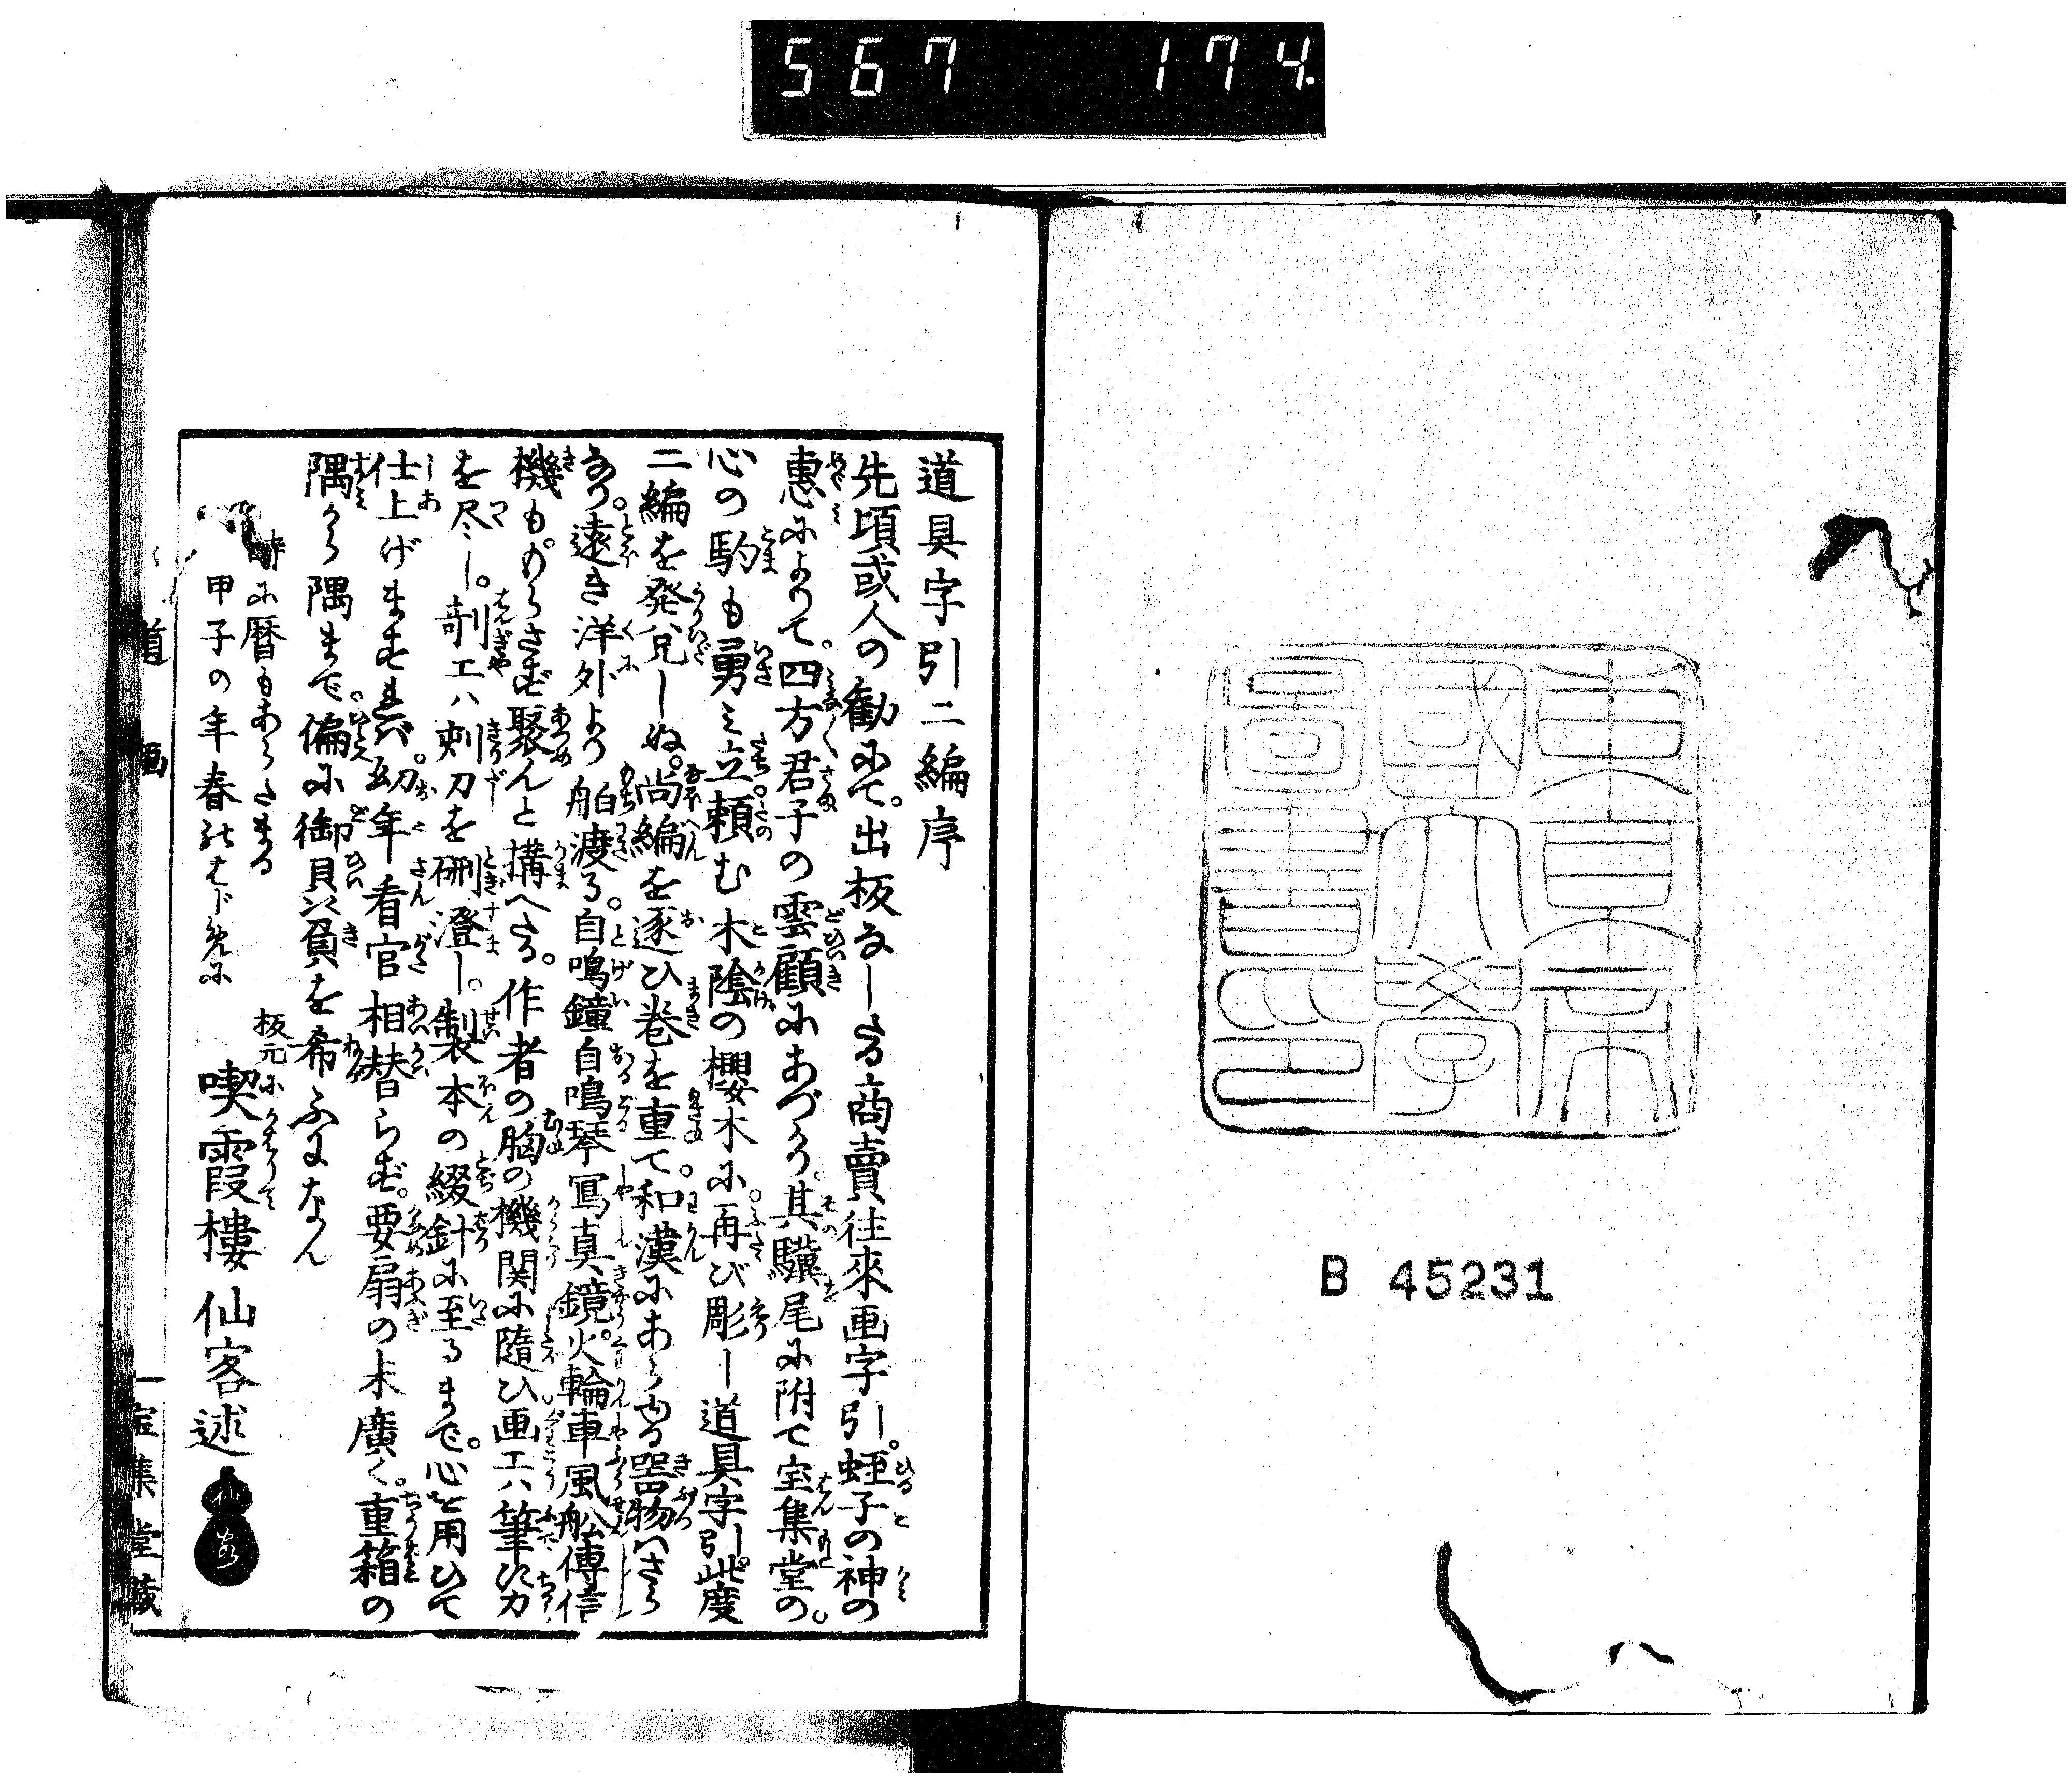 567 174.
東京帝
國大學
圖書印
B 45231
道具字引二編序
先頃或人の勧にて。出板なしたる商賣往來画字引。蛭子の神の
惠によつて。四方君子の雲顧にあづかり。其驥尾に附て宝集堂の。
心の駒も勇ミ立。頼む木陰の櫻木に。再び彫し道具字引。此度
二編を発兌しぬ。尚編を逐ひ巻を重て。和漢にあらゆる噐物ハさら
なり。遠き洋外より舶渡る。自鳴鐘自鳴琴冩真鏡。火輪車風舩傳信
機も。もらさず聚んと構へたる。作者の胸の機関に隨ひ画工ハ筆に力
を尽し。剞工ハ剌刀を硎澄し。製本の綴針に至るまで。心を用ひて
仕上げますれバ。幼年看官相替らず。要扇の末廣く。重箱の
隅から隅まで。偏に御贔負を希ふになん
時に暦もあらたまる
甲子の年春
板元にかはりて
喫霞樓仙客述
仙
道 二編
宝集堂藏